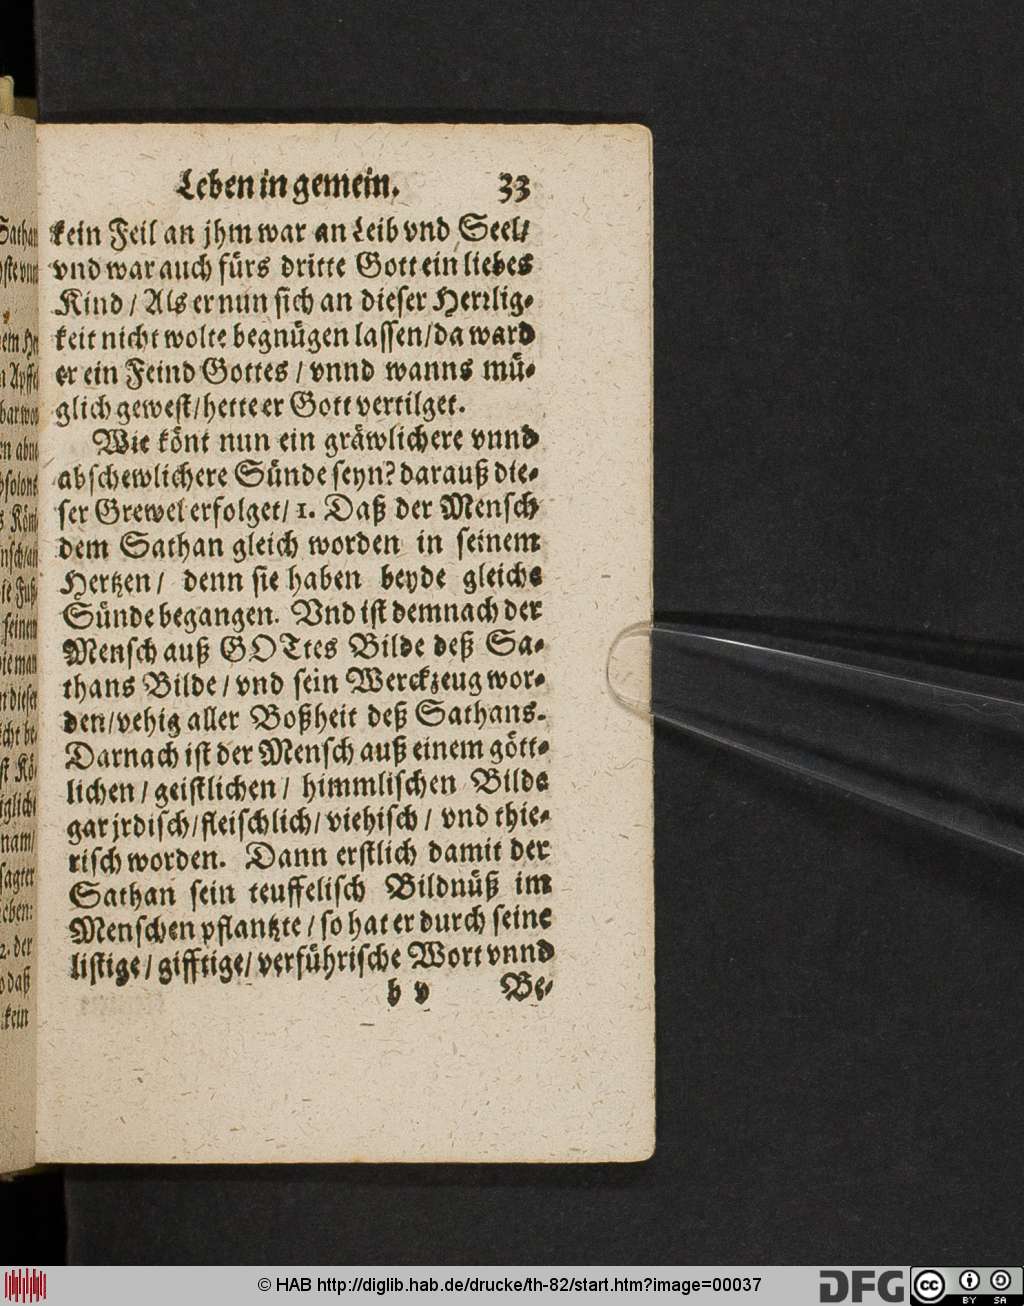 Leben in gemein. 33
kein Feil an jhm war an Leib vnd Seel/
vnd war auch fürs dritte Gott ein liebes
Kind / Als er nun sich an dieser Herrlig-
keit nicht wolte begnügen lassen/da ward
er ein Feind Gottes / vnnd wanns mü-
glich gewest/hette er Gott vertilget.
Wie könt nun ein gräwlichere vnnd
abschewlichere Sünde seyn? darauß die-
ser Grewel erfolget/ 1. Daß der Mensch
dem Sathan gleich worden in seinem
Hertzen / denn sie haben beyde gleiche
Sünde begangen. Vnd ist demnach der
Mensch auß GOTtes Bilde deß Sa-
thans Bilde / vnd sein Werckzeug wor-
den/vehig aller Boßheit deß Sathans.
Darnach ist der Mensch auß einem gött-
lichen / geistlichen / himmlischen Bilde
gar jrdisch/fleischlich/viehisch / vnd thie-
risch worden. Dann erstlich damit der
Sathan sein teuffelisch Bildnüß im
Menschen pflantzte / so hat er durch seine
listige / gifftige/ verführische Wort vnnd
b v Be-
Sathan
dieser
seinen
sagter
2. der
daß
kein
© HAB http://diglib.hab.de/drucke/th-82/start.htm?image=00037
DFG
cc BY SA